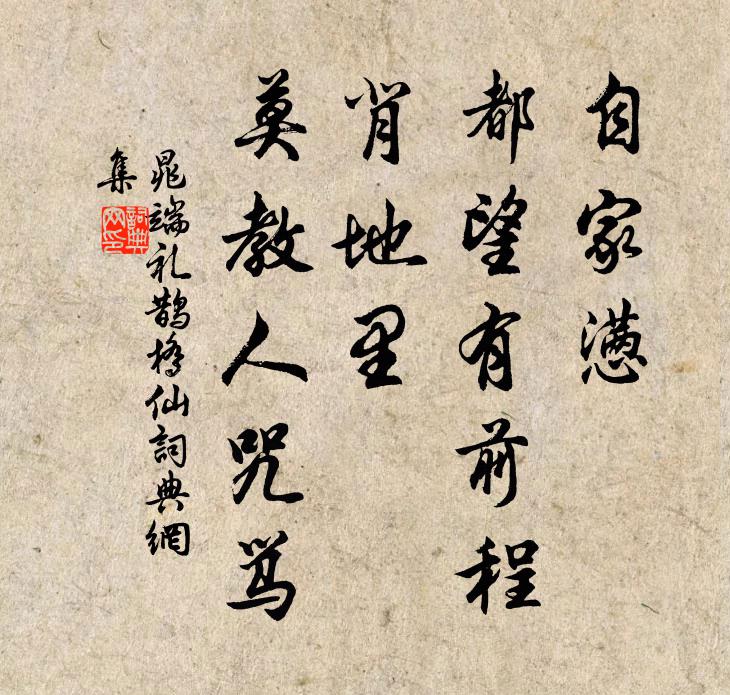 自家懑
都望有前程
背地里
莫教人咒骂
晁端礼鵲橋仙詞典網
集
詞典
网印